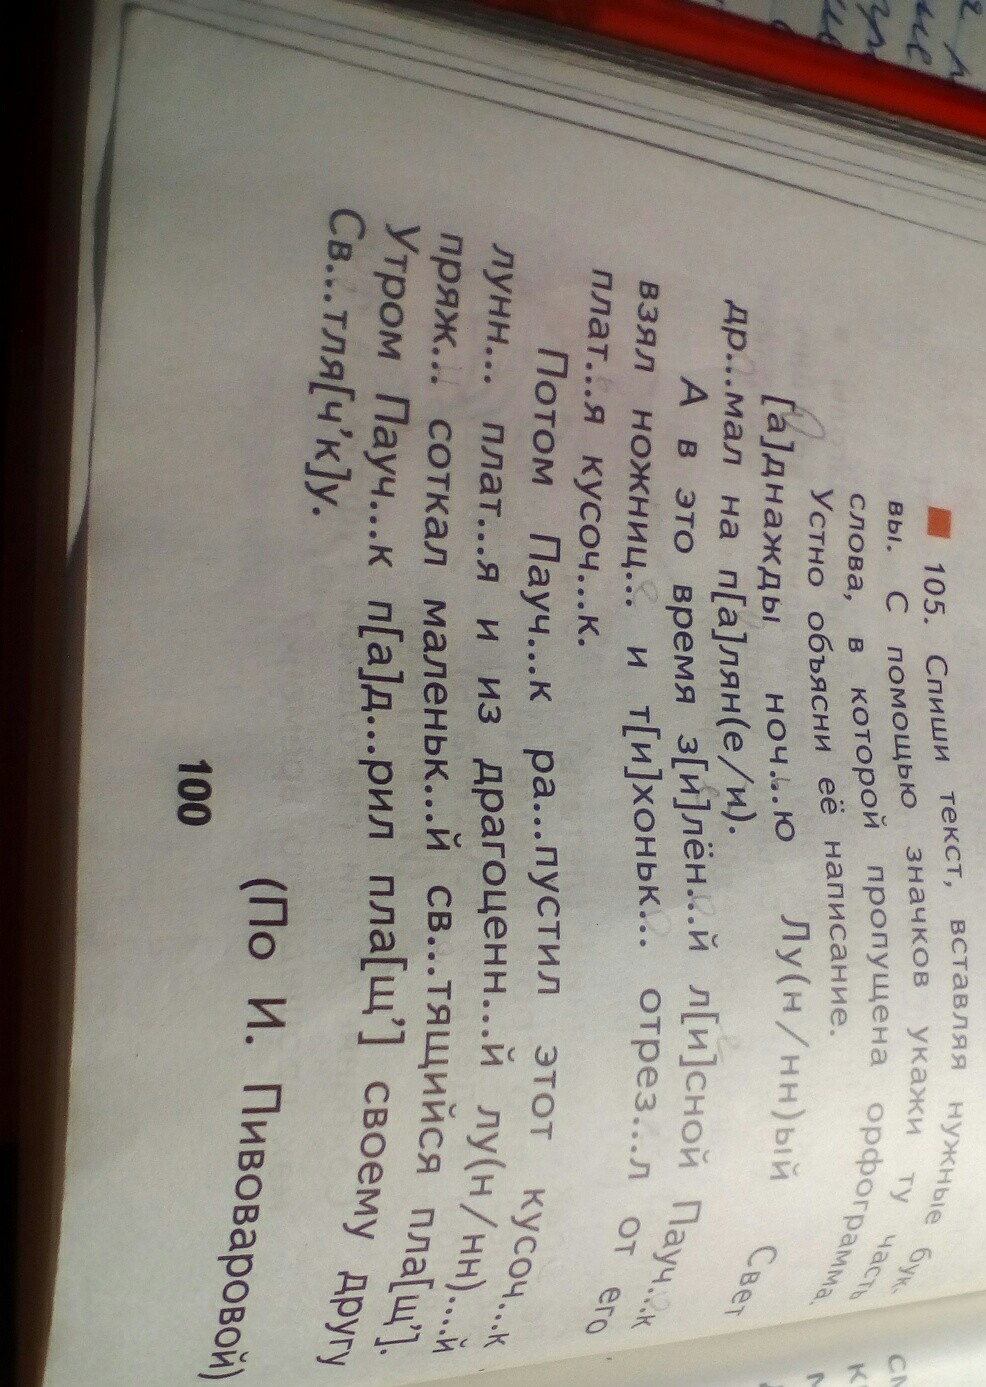 105. Спиши текст, вставляя нужные бук-
вы. С помощью значков укажи ту часть
слова, в которой пропущена орфограмма.
Устно объясни её написание.
[а]днажды ноч...ю Лу(н/нн)ый Свет
др...мал на п[а]лян(е/и).
А в это время з[и]лён...й л[и]сной Пауч...к
взял ножниц... и т[и]хоньк... отрез...л от его
плат...я кусоч...к.
Потом Пауч...к ра...пустил этот кусоч...к
лунн... плат...я и из драгоценн...й лу(н/нн)...й
пряж... соткал маленьк...й св...тящийся пла[щ'].
Утром Пауч...к п[а]д...рил пла[щ'] своему другу
Св...тля[ч'к]у.
(По И. Пивоваровой)
100